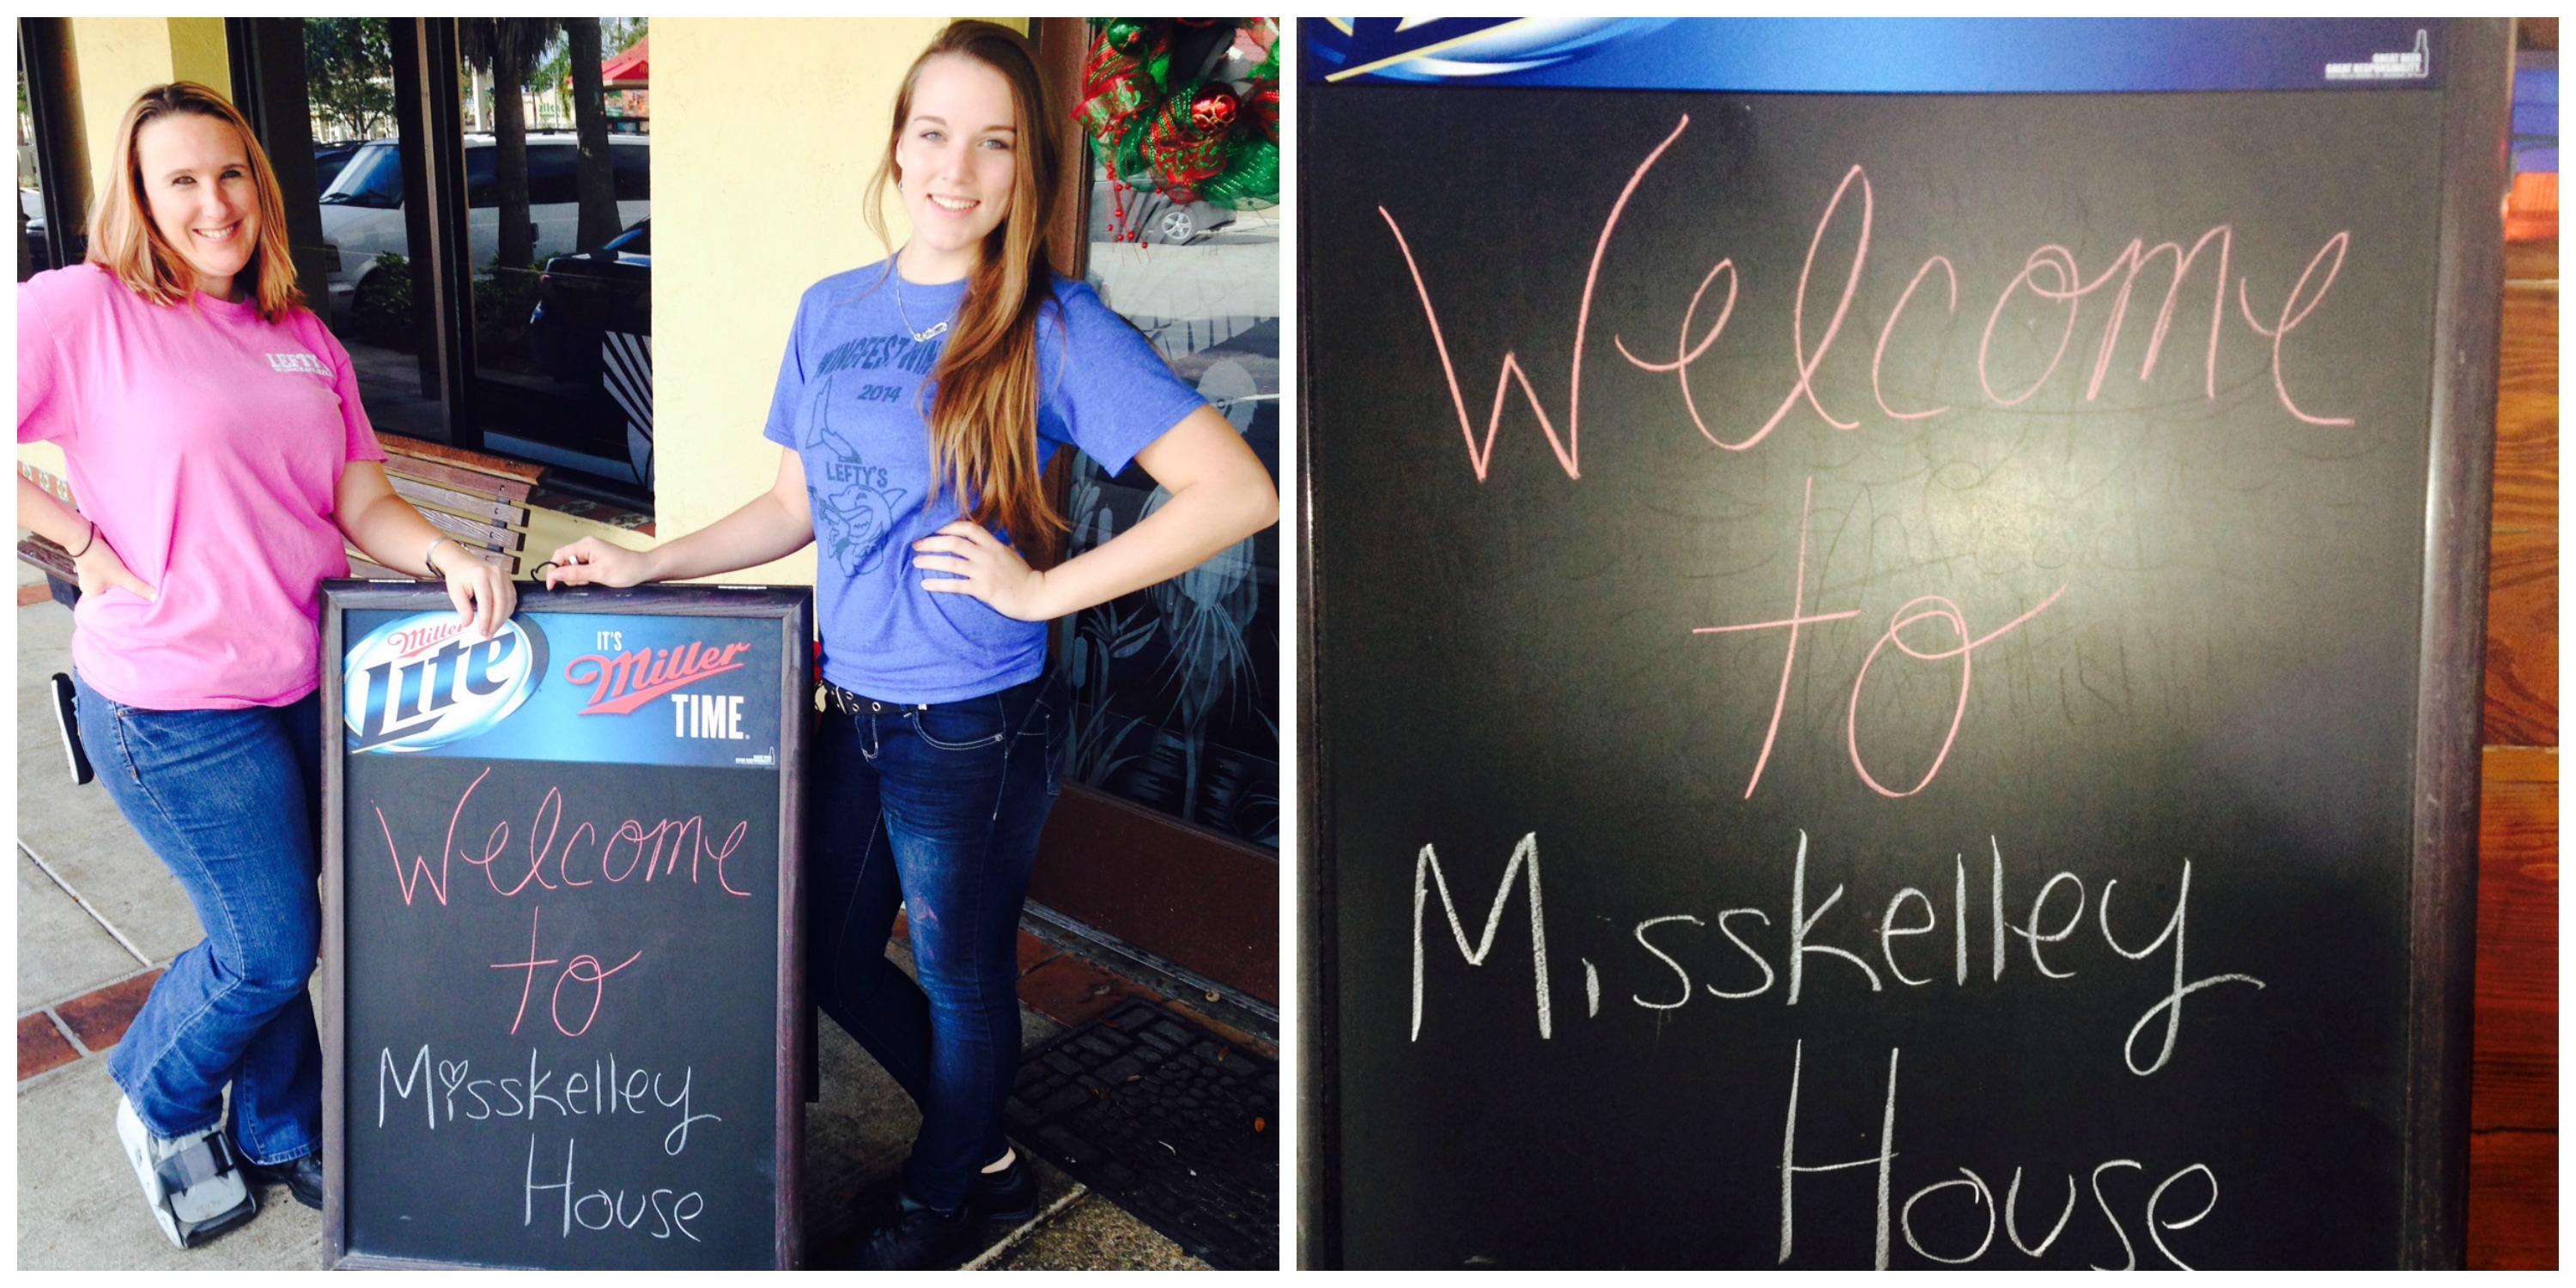 LEFTY
WINGFEST
2014
LEFTY'S
Miller
Lite
IT'S
Miller
TIME.
Welcome
to
Misskelley
House
GREAT BEER
GREAT RESPONSIBILITY
Welcome
to
Misskelley
House